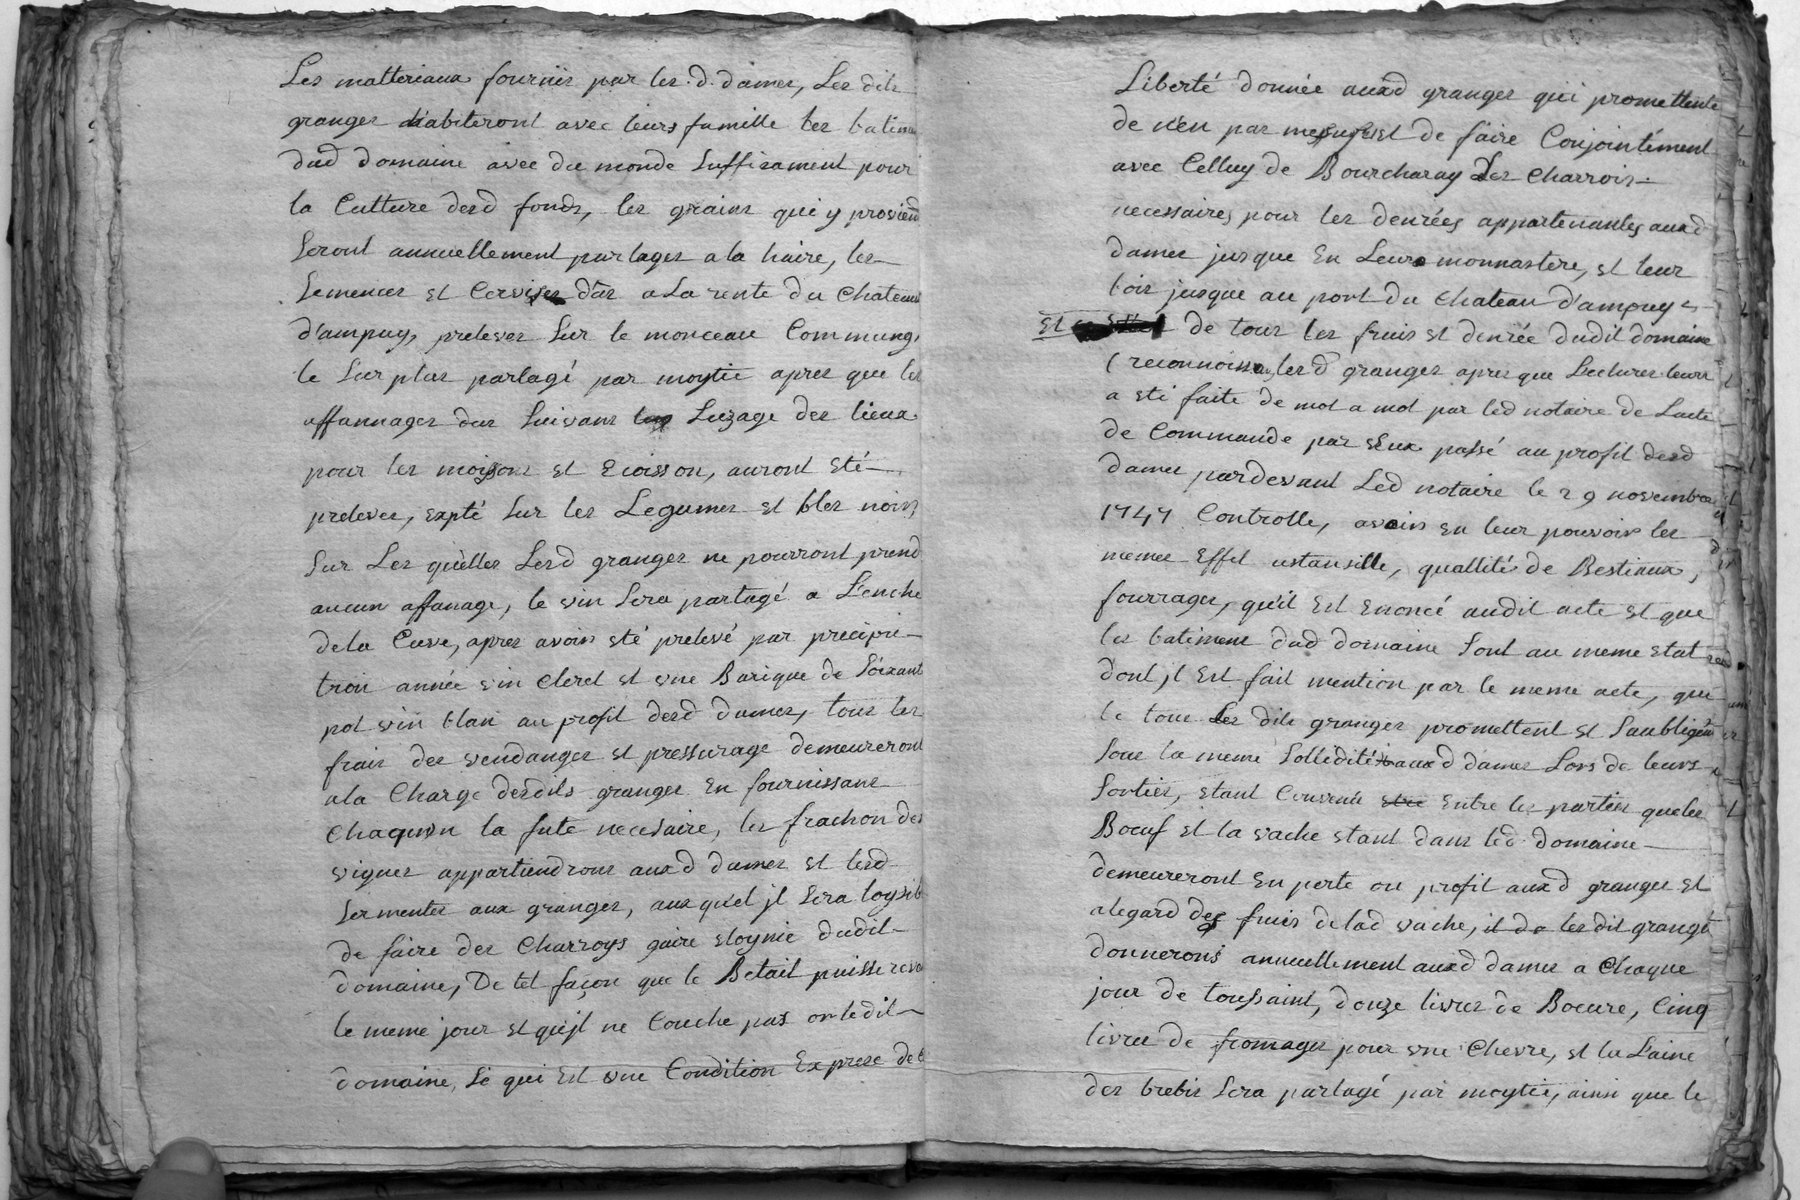 Les matteriaux fournis par les d. dames, Les dits
granges habiteront avec leurs famille les batime
dud domaine avec du monde suffisament pour
la Culture desd fonds, les grains qui y proviend
seront annuellement partages a la haire, les
semences et Cervises dûs a La rente du Chateau
d'ampuy, prelever sur le monceau Commung,
le surplus partagé par moytié apres que les
affannages dus suivant Luzage des lieux
pour les moissons et Ecoisson, auront eté
prelevee, expté sur les Legumes et bles noirs
sur Les quelles Lesd granges ne pourront prend
aucun affanage, le vin sera partagé a L'enche
de la Cuve, apres avoir eté prelevé par precipu
trois année vin cleret et une Barique de soixant
pot vin blan au profit desd dames, tous les
frais des vendanges et pressurage demeureront
a la Charge desdits granges En fournissant
chaqu'un la fute necesaire, les frachon des
vignes appartiendrons auxd dames et lesd
sermentes aux granges, aux quel jl sera loysib
de faire des Charroys guaire eloynié dudit
domaine, De tel façon que le Betail puisse reve
le meme jour et qu'jl ne Couche pas or ledit
domaine, Se qui Est une Condition Exprese de
Liberté donnée auxd granges qui promettente
de n'en pas et de faire Conjointément
avec Celluy de Bourcharay Les Charrois
necessaires pour les denrées appartenantes auxd
dames jusque En Leurs monnastere, et leur
bois jusque au port du Chateau d'ampuy
Et de tous les fruis et denrée dudit domaine
(reconnoissan lesd granges apres que Lectures leurs
a eté faite de mot a mot par led notaire de Lacte
de Commande par Eux passé au profit desd
dames pardevant Led notaire le 29 novembre
1747 Controlle, avoir en leur pouvoir les
memes Effet ustansille, quallité de Bestiaux,
fourrages, qu'il Est Enoncé audit acte et que
les batiment dud domaine sont au meme etat
dont jl Est fait mention par le meme acte, que
le tout Les dits granges promettent et s'aubligent
sous la meme sollidité auxd dames Lors de leurs
sorties, etant Convenu Entre les parties que les
Boeuf et la vache etant dans led domaine
demeureront En perte ou profit auxd granges et
alegard des fruis de lad vache, il de lesdit grange
donnerons annuellement auxd dames a chaque
jour de toussaint, douze livres de Boeure, Cinq
livres de fromages pour une Chevre, et la Laine
des brebis sera partagé par moytié, ainsi que le